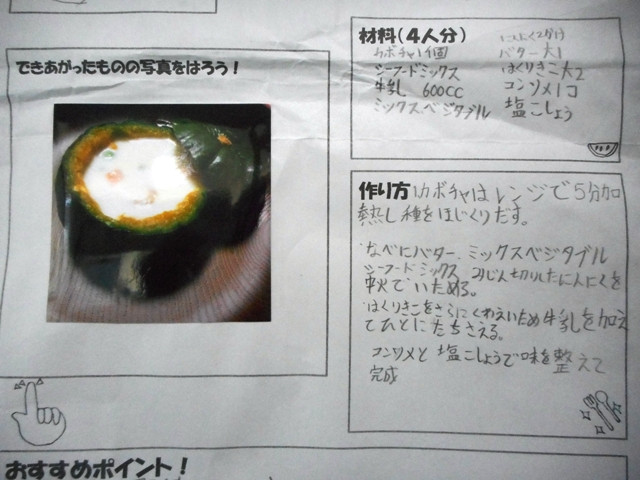 できあがったものの写真をはろう!
材料(4人分)
カボチャ1個
シーフードミックス
牛乳 600CC
ミックスベジタブル
にんにく2かけ
バター大1
はくりきこ大2
コンソメ1コ
塩こしょう
作り方 カボチャはレンジで5分加
熱し種をほじくりだす。
・なべにバター、ミックスベジタブル
シーフードミックス みじん切りしたにんにくを
でいためる。
・はくりきこをさらにくわえいため牛乳を加え
てひとにたちさえる。
コンソメと塩こしょうで味を整えて
完成
おすすめポイント!